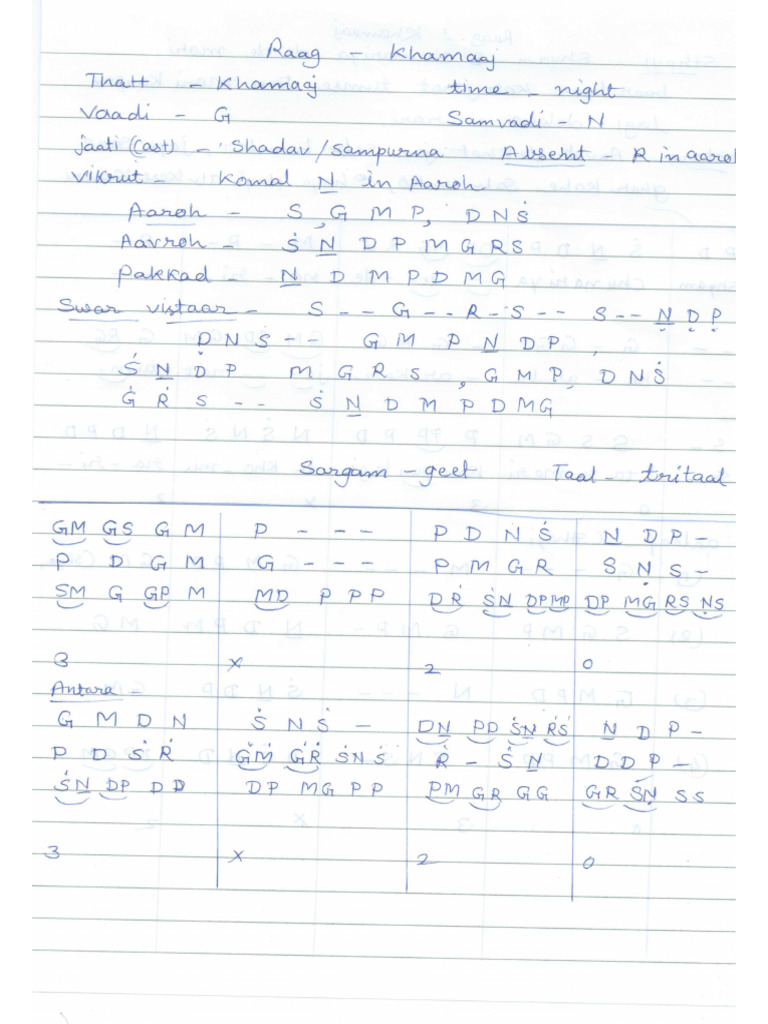 Raag - Khamaaj
Thatt - Khamaaj time - night
Vaadi - G Samvadi - N
jaati (cast) - Shadav/Sampurna Absent - R in aaroh
Vikrut - Komal N̲ in Aaroh
Aaroh - S , G M P, D N Ṡ
Aavroh - Ṡ N̲ D P M G R S
Pakkad - N̲ D M P D M G
Swar vistaar - S - - - G - - R - S - - S - - Ṇ̲ Ḍ P̣
Ḍ N S - - G M P N̲ D P ,
Ṡ N̲ D P M G R S , G M P, D N Ṡ
Ġ Ṙ S - - Ṡ N̲ D M P D M G
Sargam - geet Taal - tritaal
GM GS G M P - - - P D N Ṡ N̲ D P -
P D G M G - - - P M G R S Ṇ S -
SM G GP M MD P P P DṘ ṠN̲ DPMP DP MG RS NS
3 x 2 0
Antara -
G M D N Ṡ N Ṡ - DN PD ṠN ṘṠ N̲ D P -
P D Ṡ Ṙ ĠṀ ĠṘ ṠN Ṡ Ṙ - Ṡ N̲ D D P -
ṠN̲ DP D D DP MG P P PM GR GG GR SN SS
3 x 2 0